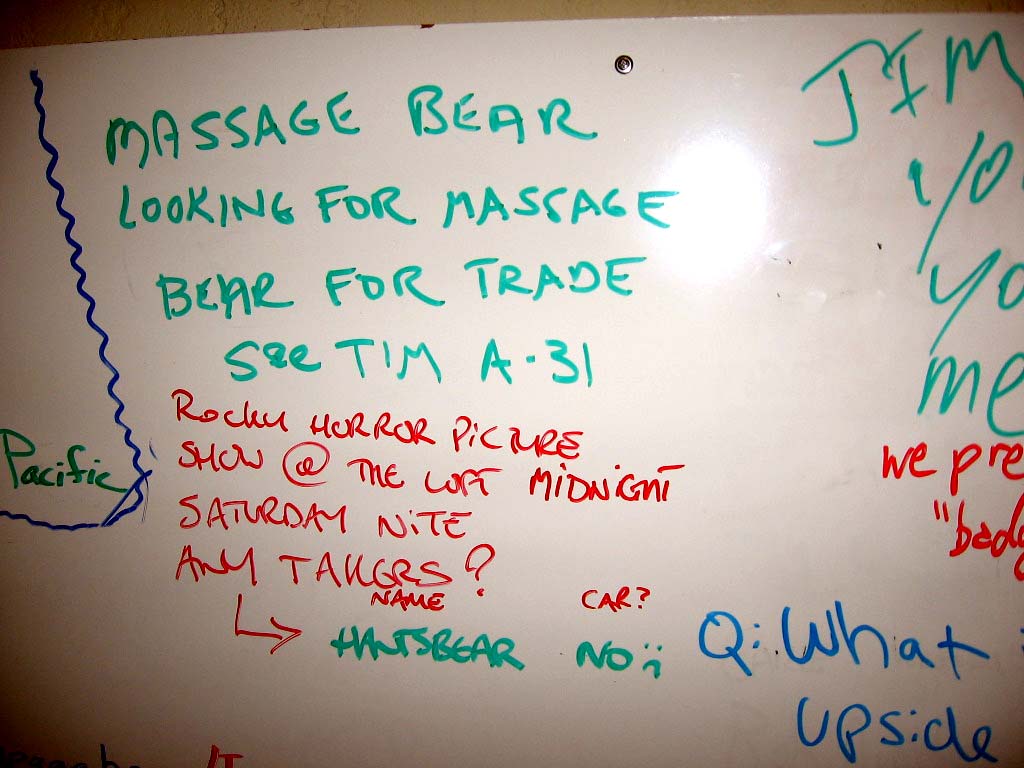 MASSAGE BEAR
LOOKING FOR MASSAGE
BEAR FOR TRADE
See TIM A-31
Rocky HORROR PiCTURE
SHOW @ THE LOFT MiDNiGHT
SATURDAY NiTE
ANY TAKERS?
NAME CAR?
HANTSBEAR NO
Pacific
JIM
yo
me
we pre
"badg
Q: What
upside